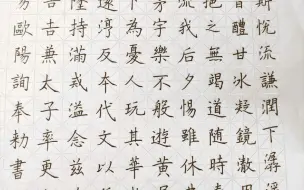 斯悅流謙潤下潺
醴甘冰凝鏡澈
挹之無竭道隨時
流我后夕惕雖休
宇樂不般遊黃
為憂人玩其華
還淳反本代文以
持滿戒溢念茲
吉兼太子率更
歐陽詢奉勅書